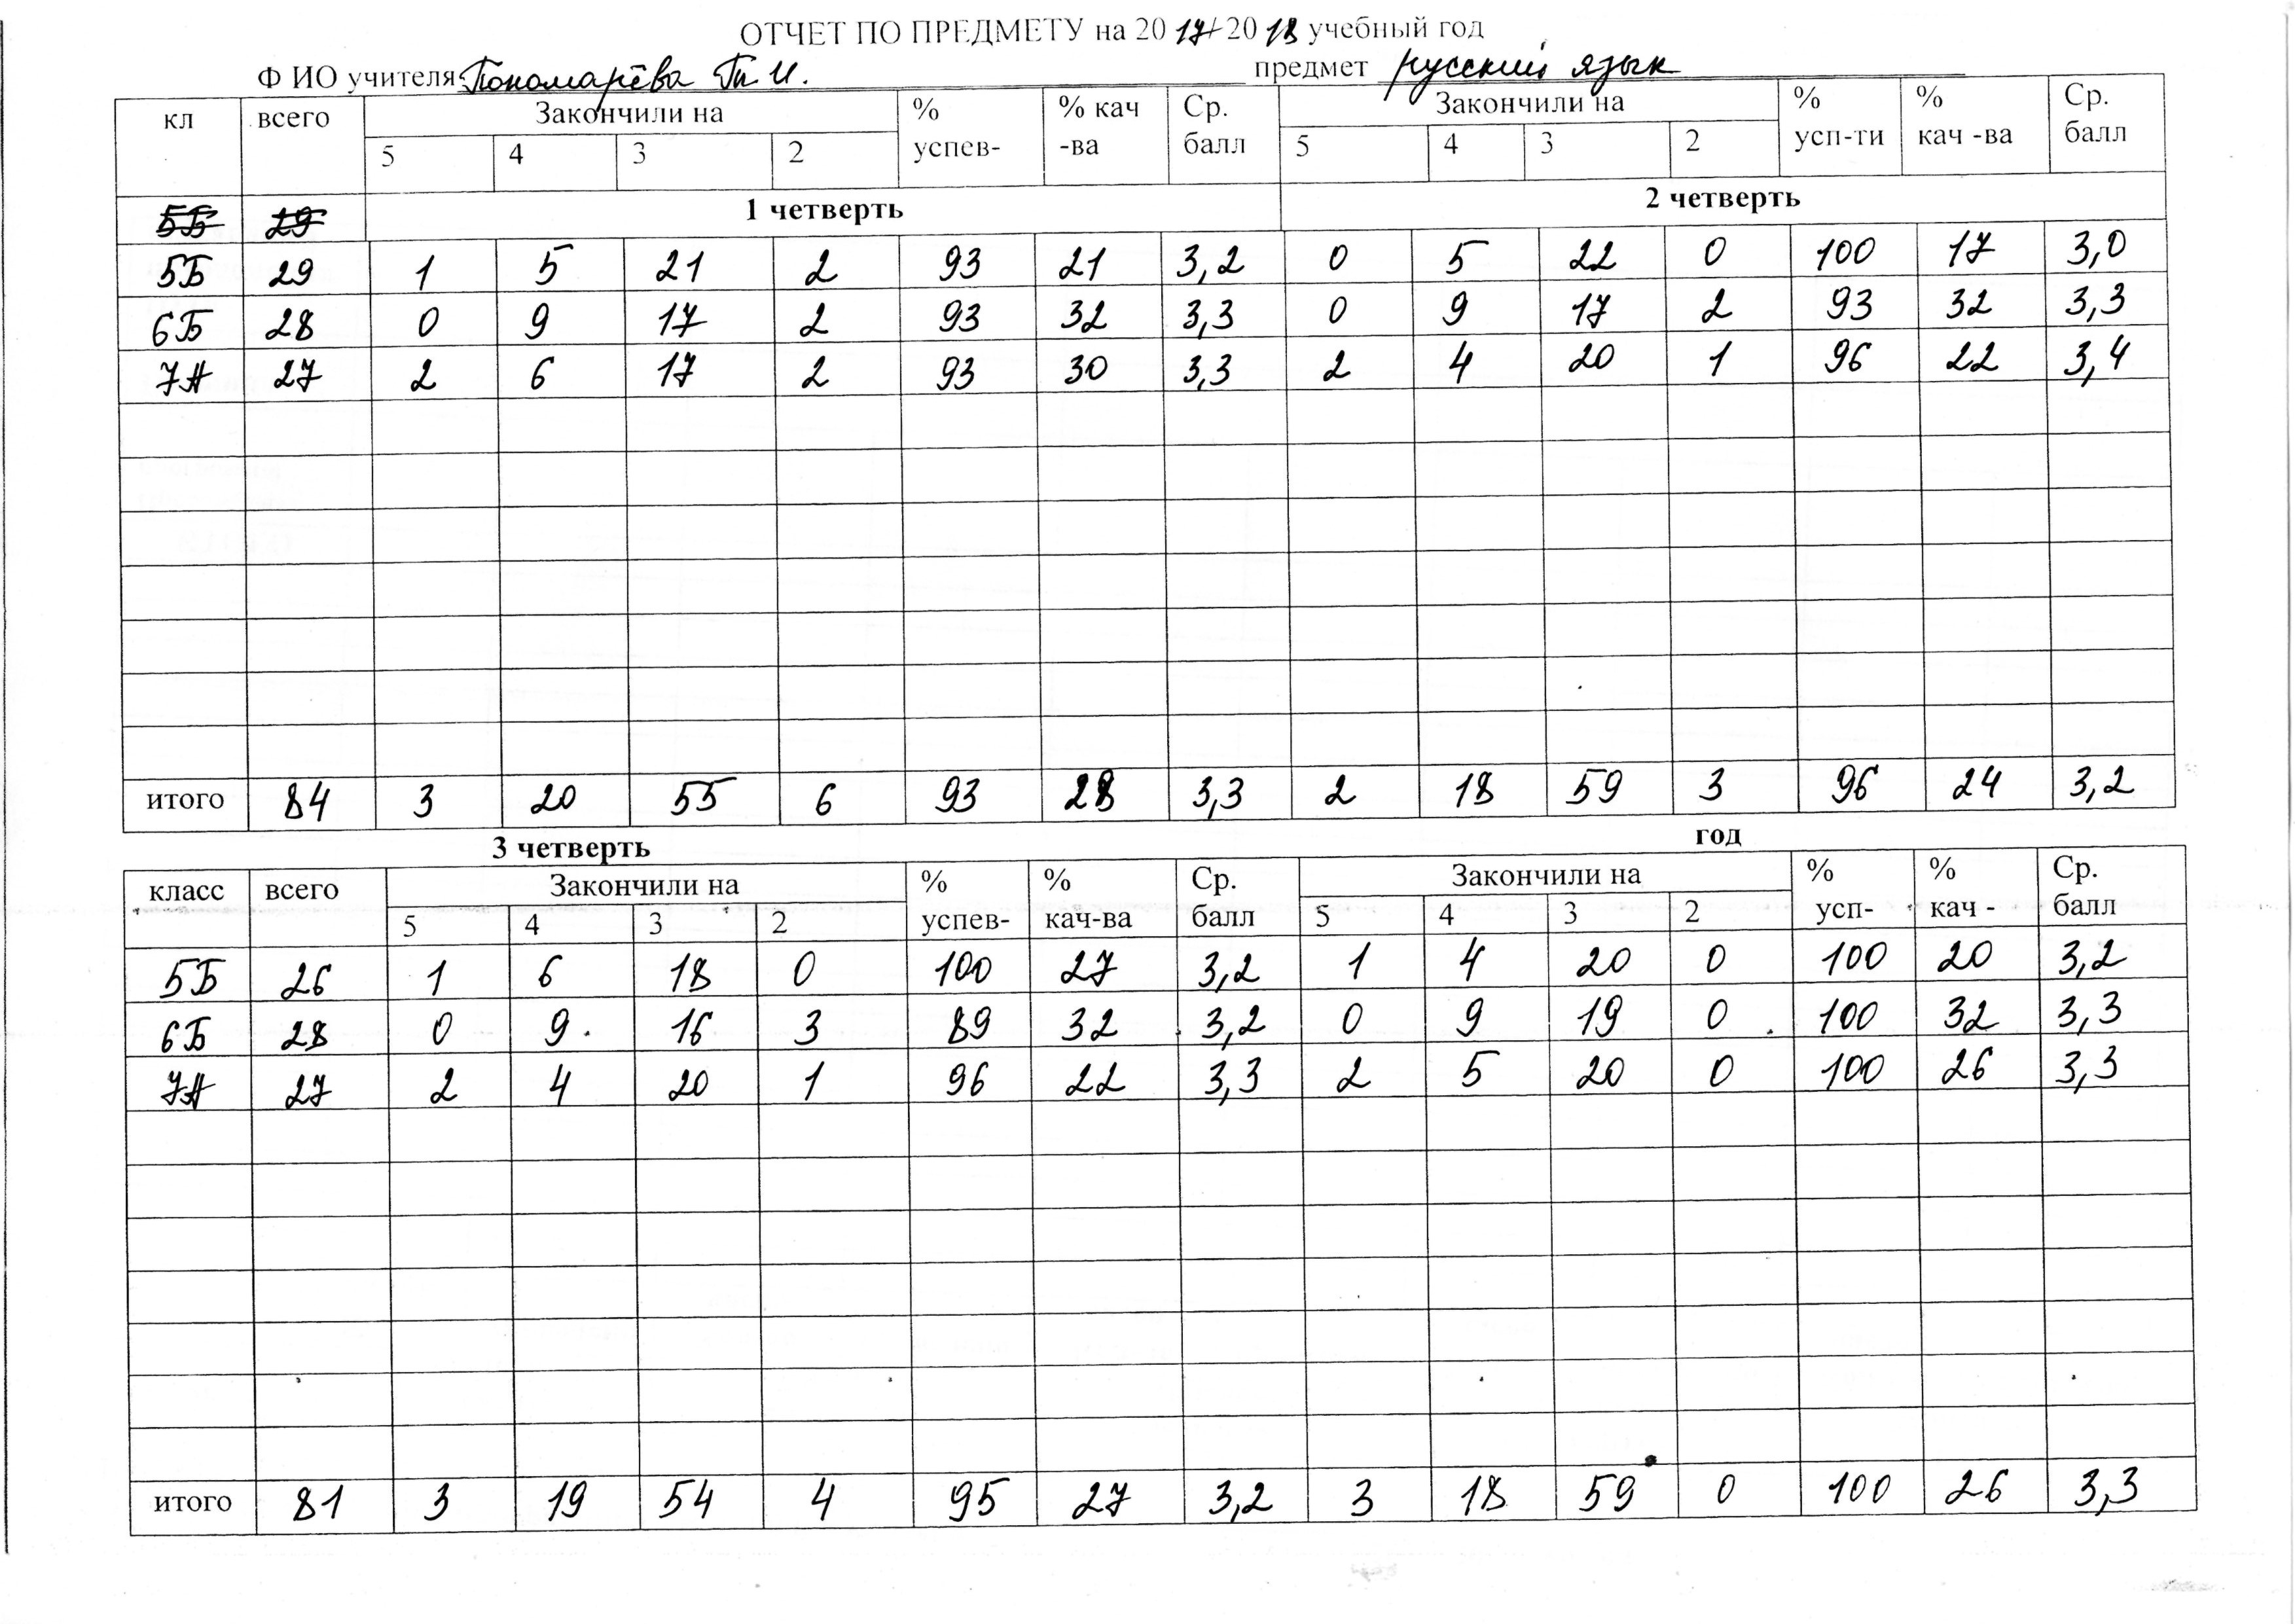 ОТЧЕТ ПО ПРЕДМЕТУ на 2017/2018 учебный год
Ф ИО учителя Пономарёва Т. И. предмет русский язык
кл всего Закончили на % успев- % кач -ва Ср. балл Закончили на % усп-ти % кач -ва Ср. балл
5 4 3 2 5 4 3 2
5Б 29 1 четверть 2 четверть
5Б 29 1 5 21 2 93 21 3,2 0 5 22 0 100 17 3,0
6Б 28 0 9 17 2 93 32 3,3 0 9 17 2 93 32 3,3
7А 27 2 6 17 2 93 30 3,3 2 4 20 1 96 22 3,4
итого 84 3 20 55 6 93 28 3,3 2 18 59 3 96 24 3,2
3 четверть год
класс всего Закончили на % успев- % кач-ва Ср. балл Закончили на % усп- % кач - Ср. балл
5 4 3 2 5 4 3 2
5Б 26 1 6 18 0 100 27 3,2 1 4 20 0 100 20 3,2
6Б 28 0 9 16 3 89 32 3,2 0 9 19 0 100 32 3,3
7А 27 2 4 20 1 96 22 3,3 2 5 20 0 100 26 3,3
итого 81 3 19 54 4 95 27 3,2 3 18 59 0 100 26 3,3